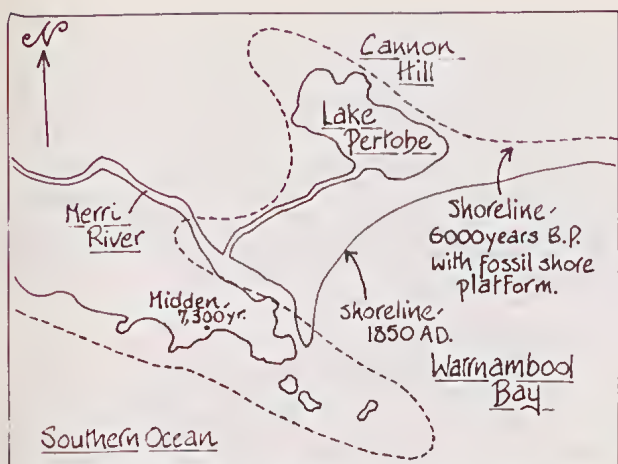 N
Cannon
Hill
Lake
Pertobe
Merri
River
Shoreline-
6000 years B.P.
with fossil shore
platform.
Midden,
7,300yr.
Shoreline-
1850 AD.
Warrnambool
Bay
Southern Ocean